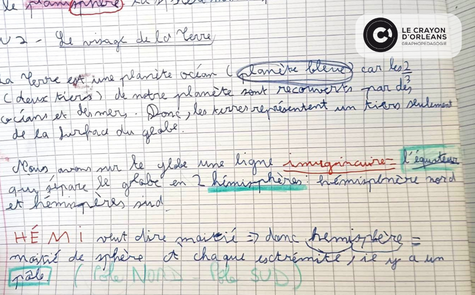 le planisphère
LE CRAYON
D'ORLEANS
GRAPHOPEDAGOGIE
2 - Le visage de la Terre
La Terre est une planète océan (planète bleue) car les 2/3
(deux tiers) de notre planète sont recouverts par des
océans et des mers. Donc, les terres représentent un tiers seulement
de la surface du globe.
Nous avons sur le globe une ligne imaginaire = l'équateur
qui sépare le globe en 2 hémisphères hémisphère nord
et hémisphères sud.
HÉMI veut dire moitié => donc hémisphère =
moitié de sphère et chaque extrémité, il y a un
pôle (Pôle NORD - Pôle SUD)